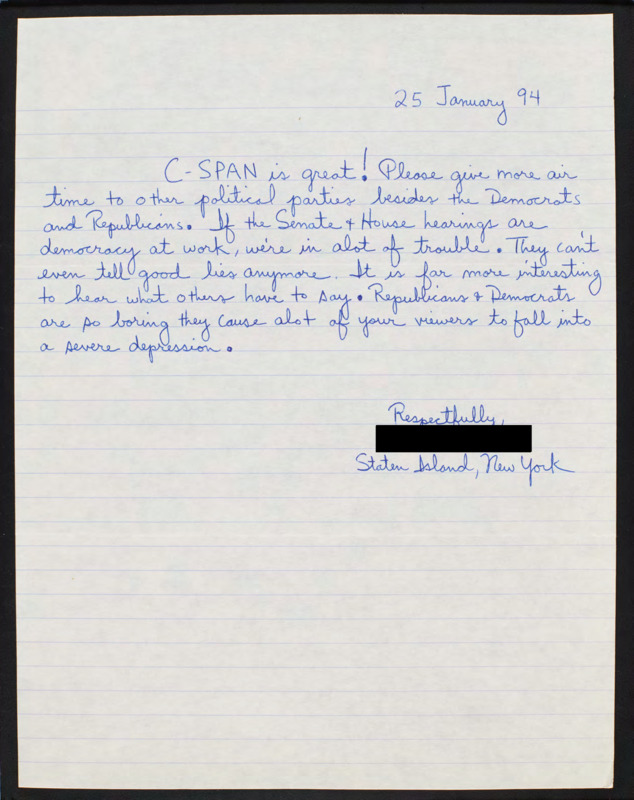 25 January 94
C-SPAN is great! Please give more air
time to other political parties besides the Democrats
and Republicans. If the Senate & House hearings are
democracy at work, we're in alot of trouble. They can't
even tell good lies anymore. It is far more interesting
to hear what others have to say. Republicans & Democrats
are so boring they cause alot of your viewers to fall into
a severe depression.
Respectfully,
Staten Island, New York